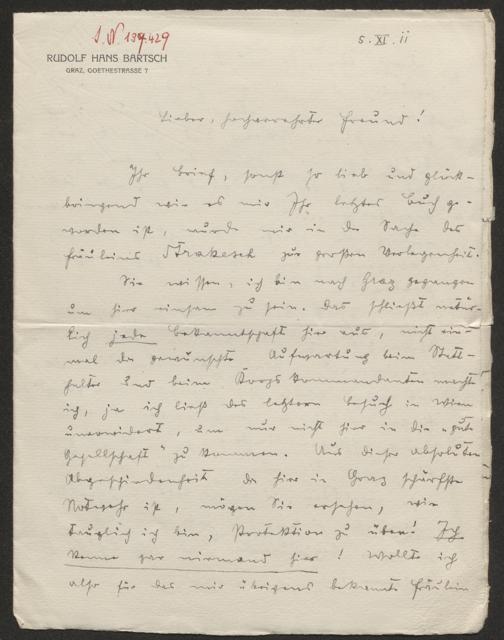 I.N. 139.429
RUDOLF HANS BARTSCH
GRAZ, GOETHESTRASSE 7
5. XI. 11
Lieber, hochverehrter Freund!
Ihr Brief, sonst so lieb und glück-
bringend wie es mir Ihr letztes Buch ge-
worden ist, wurde mir in der Sache des
Fräuleins Strakesch zur großen Verlegenheit.
Sie wissen, ich bin nach Graz gegangen
um hier einsam zu sein. Das schließt natür-
lich jede Bekanntschaft hier aus, nicht ein-
mal die gewünschte Aufwartung beim Statt-
halter und beim Korpskommandanten machte
ich, ja ich ließ des letztern Besuch in Wien
unerwidert, um nur nicht hier in die „gute
Gesellschaft“ zu kommen. Aus dieser absoluten
Abgeschiedenheit die hier in Graz schärfste
Notwehr ist, mögen Sie ersehen, wie
tauglich ich bin, Protektion zu üben! Ich
kenne gar niemand hier! Wollte ich
also für das mir übrigens bekannte Fräulein